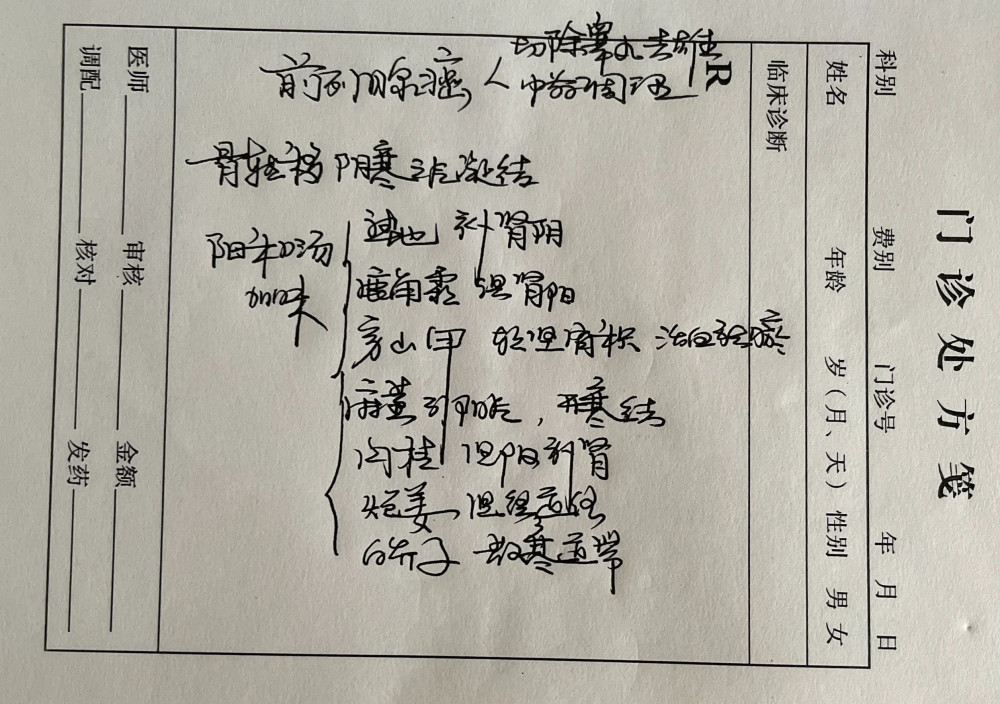 门诊处方笺
科别 费别 门诊号 年 月 日
姓名 年龄 岁(月、天) 性别 男 女
临床诊断
R
切除睾丸去雄
前列腺癌 中药调理
骨转移 阴寒之气凝结
阳和汤加味
熟地 补肾阴
鹿角霜 温肾阳
穿山甲
麻黄 引阳气,开寒结
肉桂 温阳到肾
炮姜 温经通络
白芥子 散寒通滞
医师 审核 金额
调配 核对 发药